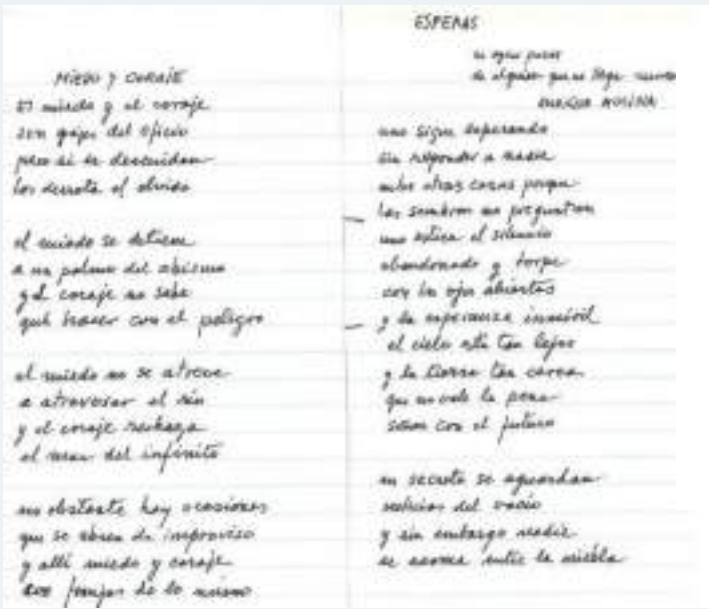 MIEDO Y CORAJE
El miedo y el coraje
son gajes del oficio
pero si se descuidan
los derrota el olvido
el miedo se detiene
a un palmo del abismo
y el coraje no sabe
qué hacer con el peligro
el miedo no se atreve
a atravesar el río
y el coraje rechaza
el mar del infinito
no obstante hay ocasiones
que se abren de improviso
y allí miedo y coraje
son franjas de lo mismo
ESPERAS
es mejor
de alguien que no llega nunca
ENRIQUE MOLINA
uno sigue esperando
sin responder a nadie
entre otras cosas porque
las sombras no preguntan
uno estira el silencio
abandonado y torpe
con los ojos abiertos
y la esperanza inmóvil
el cielo está tan lejos
y la tierra tan cerca
que no vale la pena
soñar con el futuro
en secreto se aguardan
noticias del vacío
y sin embargo nadie
se asoma entre la niebla